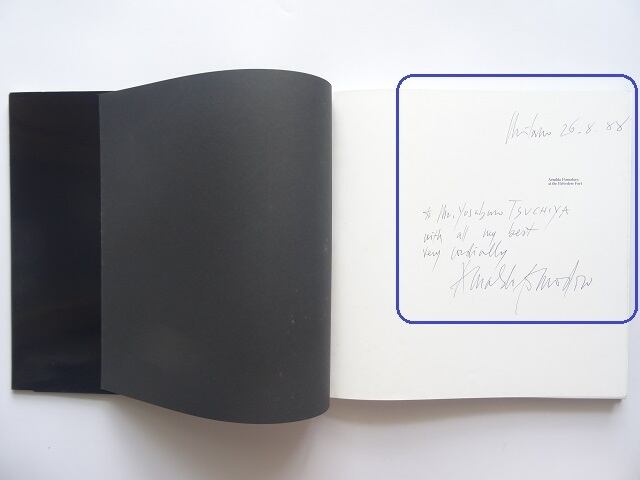 Milano 26.8.88
Arnaldo Pomodoro
at the Belvedere Fort
to Mr. Yosaburo TSUCHIYA
with all my best
very cordially
Arnaldo Pomodoro